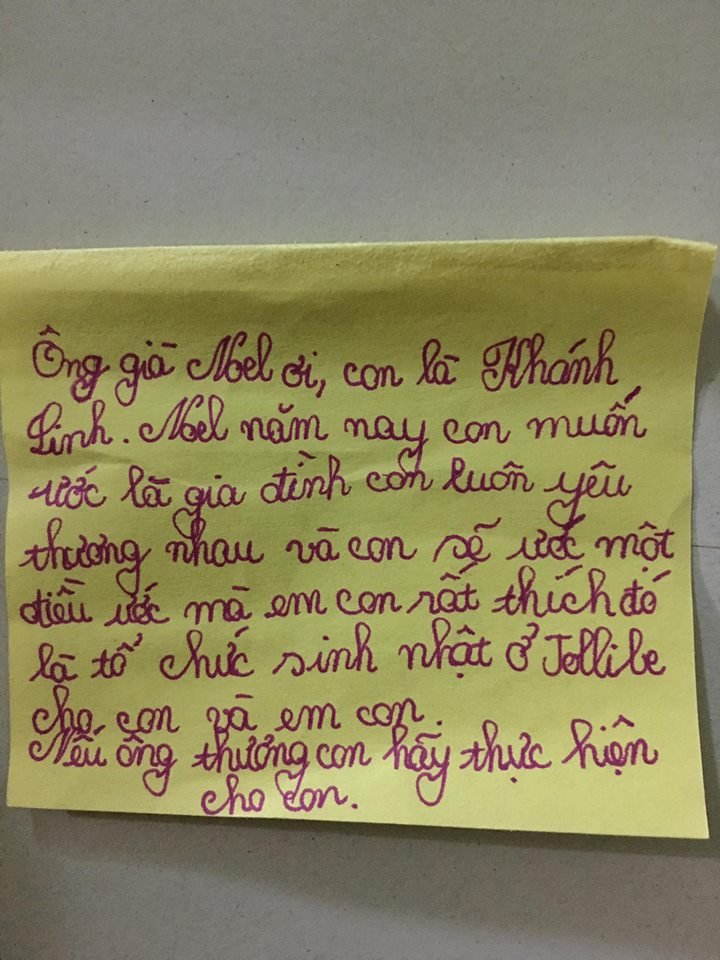 Ông già Noel ơi, con là Khánh
Linh. Noel năm nay con muốn
ước là gia đình con luôn yêu
thương nhau và con sẽ ước một
điều ước mà em con rất thích đó
là tổ chức sinh nhật ở Jollibe
cho con và em con.
Nếu ông thương con hãy thực hiện
cho con.